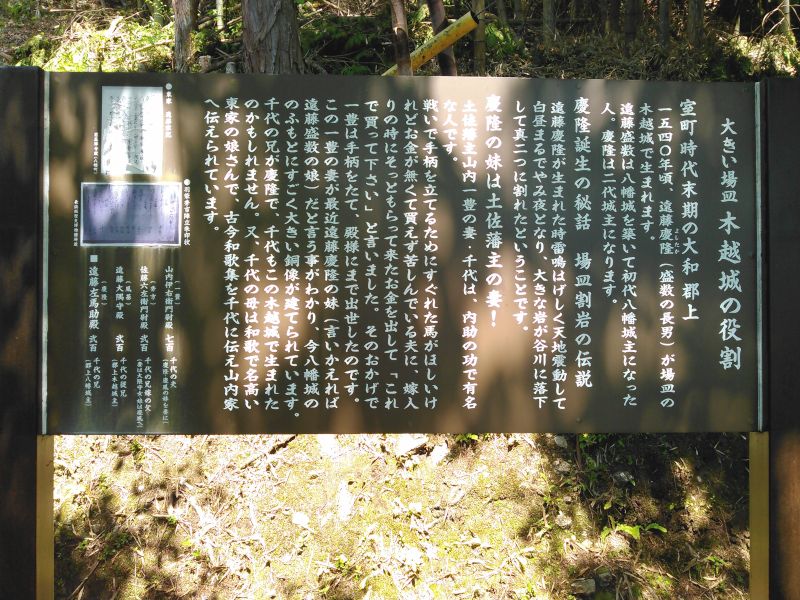 大きい場皿 木越城の役割
室町時代末期の大和郡上
一五四〇年頃、遠藤慶隆(盛数の長男)が場皿の
よしたか
木越城で生まれます。
遠藤盛数は八幡城を築いて初代八幡城主になった
人。慶隆は二代城主になります。
慶隆誕生の秘話 場皿割岩の伝説
遠藤慶隆が生まれた時雷鳴はげしく天地震動して
白昼まるでやみ夜となり、大きな岩が谷川に落下
して真二つに割れたということです。
慶隆の妹は土佐藩主の妻!
土佐藩主山内一豊の妻・千代は、内助の功で有名
な人です。
戦いで手柄を立てるためにすぐれた馬がほしいけ
れどお金が無くて買えず苦しんでいる夫に、嫁入
りの時にそっともらって来たお金を出して「これ
で買って下さい」と言いました。そのおかげで
一豊は手柄をたて、殿様にまで出世したのです。
この一豊の妻が最近遠藤慶隆の妹(言いかえれば
遠藤盛数の娘)だと言う事がわかり、今八幡城の
のふもとにすごく大きい銅像が建てられています。
千代の兄が慶隆で、千代もこの木越城で生まれた
のかもしれません。又、千代の母は和歌で名高い
東家の娘さんで、古今和歌集を千代に伝え山内家
へ伝えられています。
羽柴秀吉陣立朱印状
(一豊)
山内伊右衛門尉殿 七百 千代の夫
佐藤六左衛門尉殿 弐百 千代の兄嫁の父
遠藤大隅守殿 弐百 千代の従兄
(郡上木越城主)
(慶隆)
■遠藤左馬助殿 弐百 千代の兄
(郡上八幡城主)